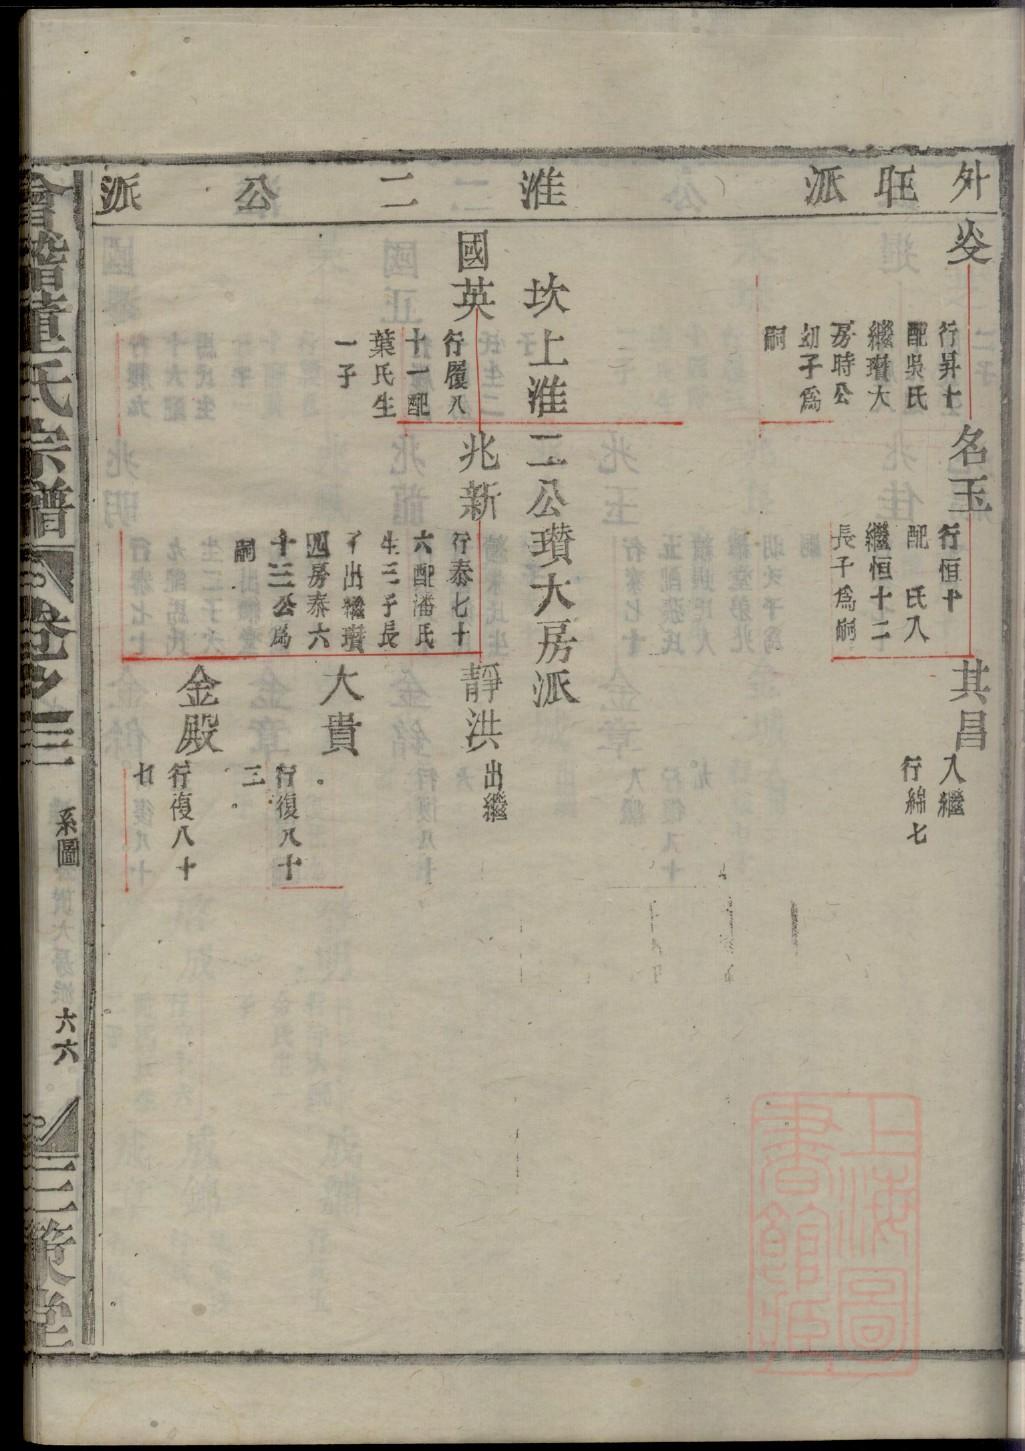 外旺派
淮二公派
㷠
行昇十
配吳氏
繼瓚大
房時公
幼子爲
嗣
名玉
行恒十
配　氏入
繼恒十二
長子爲嗣
其昌
入繼
行綿七
坎上淮二公瓚大房派
國英
行履八
十一配
葉氏生
一子
兆新
行泰七十
六配潘氏
生三子長
子出繼瓚
四房泰六
十三公爲
嗣
靜洪
出繼
大貴
行復八十
三
金殿
行復八十
七
會稽董氏宗譜
卷之三
系圖
六六
三策堂
上海圖
書館藏